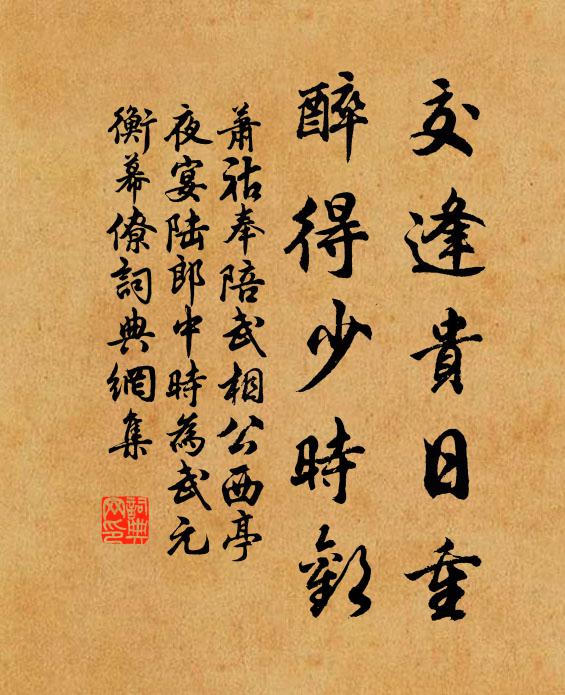 交逢貴日重
醉得少時歡
蕭祜奉陪武相公西亭
夜宴陆郎中時為武元
衡幕僚詞典網集
詞典
网印